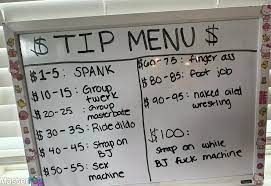 $ TIP MENU $
$1-5: SPANK
$10-15: Group
twerk
$20-25: group
masterbate
$30-35: Ride dildo
$40-45: strap on
BJ
$50-55: sex
machine
$60-75: finger ass
$80-85: foot job
$90-95: naked oiled
wrestling
$100:
strap on while
BJ fuck machine